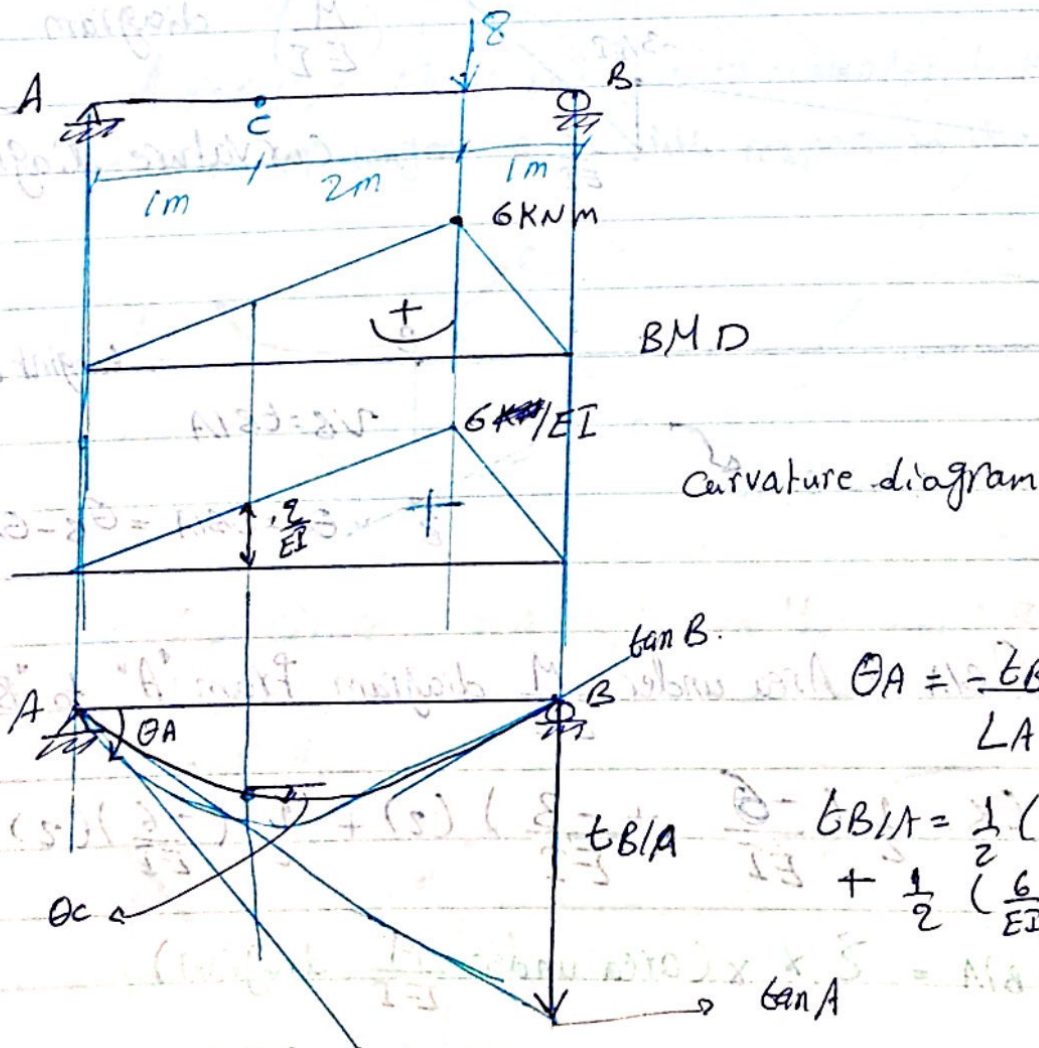 8
A
B
C
1m
2m
1m
6KNM
+
BMD
6/EI
2/EI
+
Curvature diagram
tanB.
A
θA
B
θA = - tB
LA
tB/A
tB/A = 1/2 (
+ 1/2 (6/EI
θc
tanA